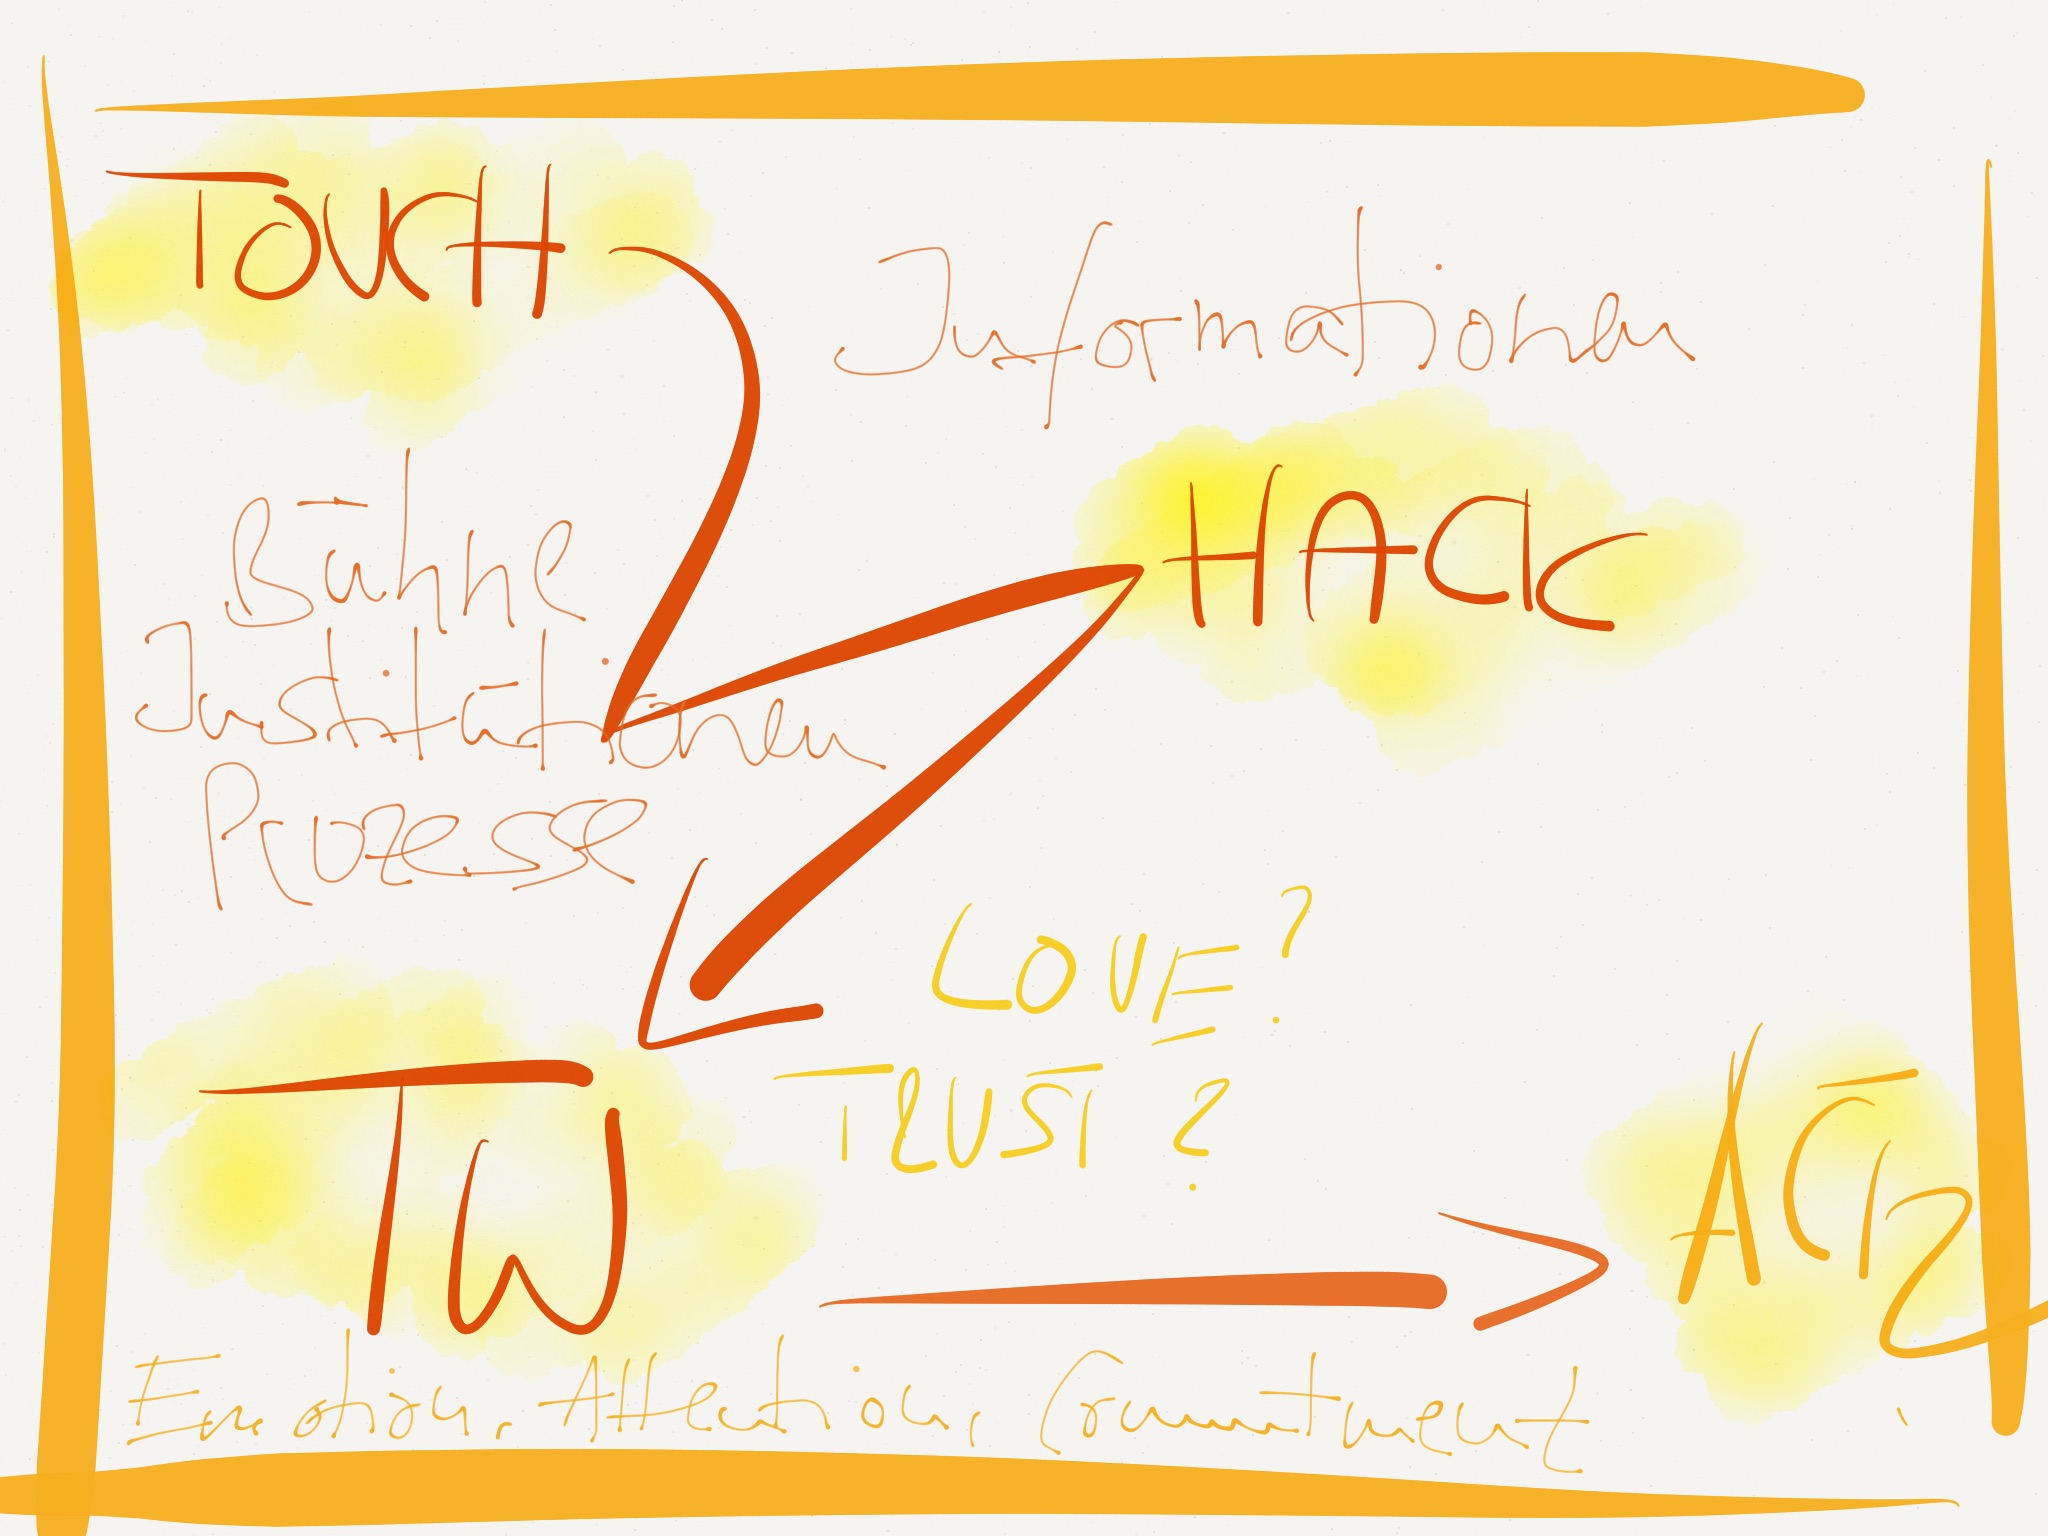 TOUCH
Informationen
HACK
Bühne
Institutionen
Prozesse
LOVE?
TRUST?
TW
ACT2
Emotion, Attention, Commitment